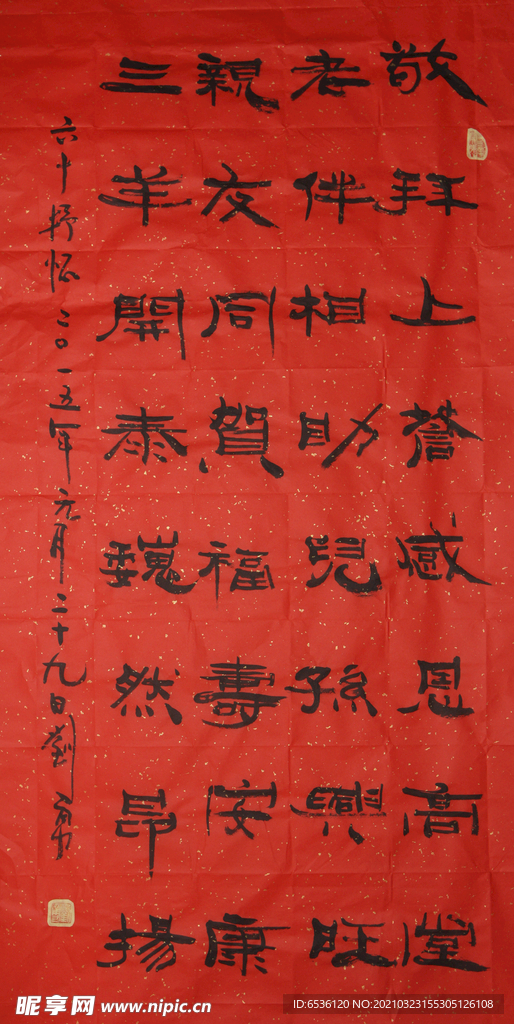 敬拜上蒼感恩高堂
老伴相助兒孫興旺
親友同賀福壽安康
三羊開泰巍然昂揚
六十抒怀二〇一五年元月二十九日劉勇
昵享网 www.nipic.cn
ID:6536120 NO:20210323155305126108